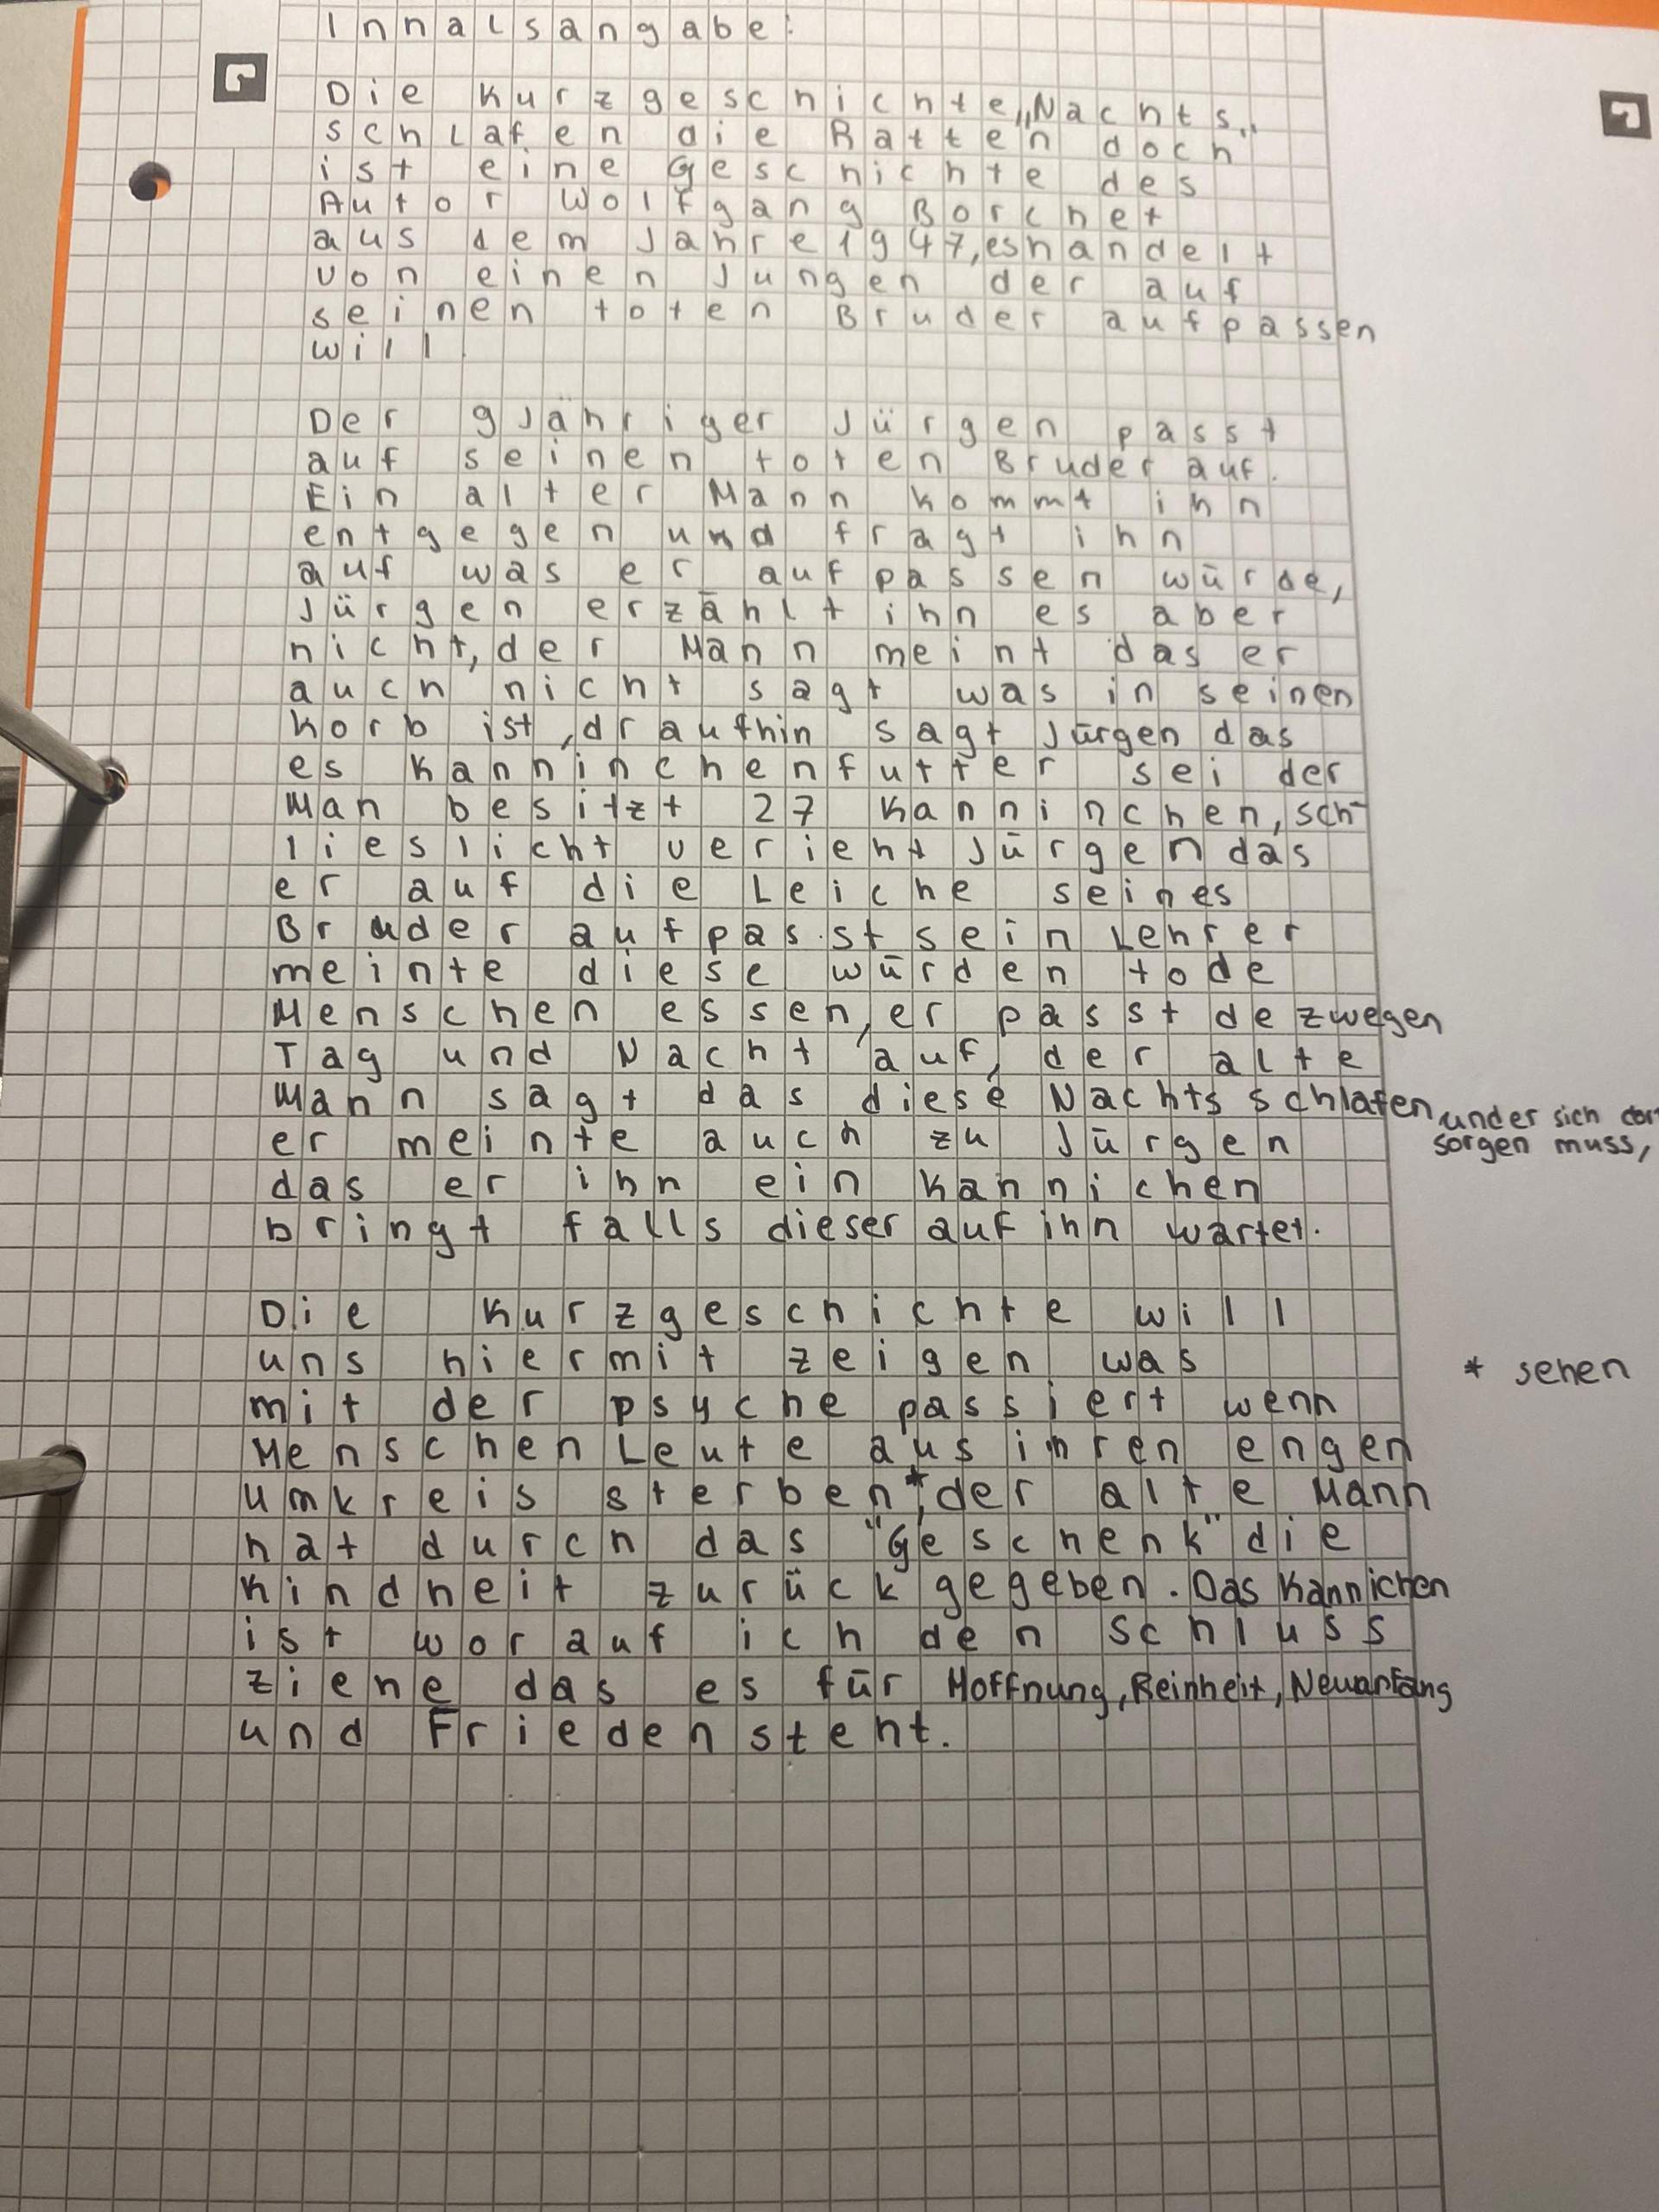 Innalsangabe:
Die Kurzgeschichte „Nachts
schlafen die Ratten doch"
ist eine Geschichte des
Autor Wolfgang Borchet
aus dem Jahre 1947, es handelt
von einen Jungen der auf
seinen toten Bruder aufpassen
will
Der 9 Jähriger Jürgen passt
auf seinen toten Bruder auf.
Ein alter Mann kommt ihn
entgegen und fragt ihn
auf was er aufpassen würde,
Jürgen erzählt ihn es aber
nicht, der Mann meint das er
auch nicht sagt was in seinen
Korb ist, draufhin sagt Jürgen das
es Kanninchenfutter sei der
Man besitzt 27 Kanninchen, sch-
lieslicht verieht Jürgen das
er auf die Leiche seines
Bruder aufpasst sein Lehrer
meinte diese würden tode
Menschen essen, er passt dezwegen
Tag und Nacht auf, der alte
Mann sagt das diese Nachts schlafen
under sich
sorgen muss,
er meinte auch zu Jürgen
das er ihn ein Kannichen
bringt falls dieser auf ihn wartet.
Die Kurzgeschichte will
uns hiermit zeigen was
mit der psyche passiert wenn
Menschen Leute aus ihren engen
umkreis sterben*, der alte Mann
* sehen
hat durch das "Geschenk" die
Kindheit zurück gegeben. Das Kannichen
ist worauf ich den schluss
ziehe das es für Hoffnung, Reinheit, Neuanfang
und Frieden steht.